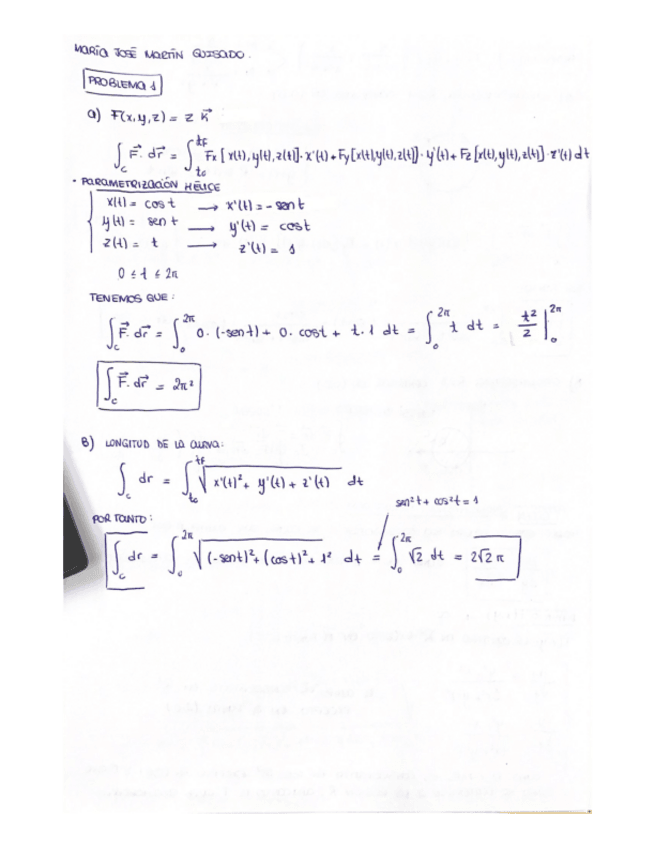 MARÍA JOSÉ MARTÍN QUISADO.
PROBLEMA 1
a) F(x,y,z) = z k⃗
∫_C F⃗·dr⃗ = ∫_{t₀}^{tf} Fx[x(t),y(t),z(t)]·x'(t) + Fy[x(t),y(t),z(t)]·y'(t) + Fz[x(t),y(t),z(t)]·z'(t) dt
· PARAMETRIZACIÓN HÉLICE
x(t) = cos t → x'(t) = - sen t
y(t) = sen t → y'(t) = cos t
z(t) = t → z'(t) = 1
0 ≤ t ≤ 2π
TENEMOS QUE:
∫_C F⃗·dr⃗ = ∫_0^{2π} 0·(-sen t) + 0·cos t + t·1 dt = ∫_0^{2π} t dt = t²/2 |_0^{2π}
∫_C F⃗·dr⃗ = 2π²
B) LONGITUD DE LA CURVA:
∫_C dr = ∫_{t₀}^{tf} √(x'(t)² + y'(t) + z'(t)) dt
sen²t + cos²t = 1
POR TANTO:
∫_C dr = ∫_0^{2π} √((-sen t)² + (cos t)² + 1²) dt = ∫_0^{2π} √2 dt = 2√2 π